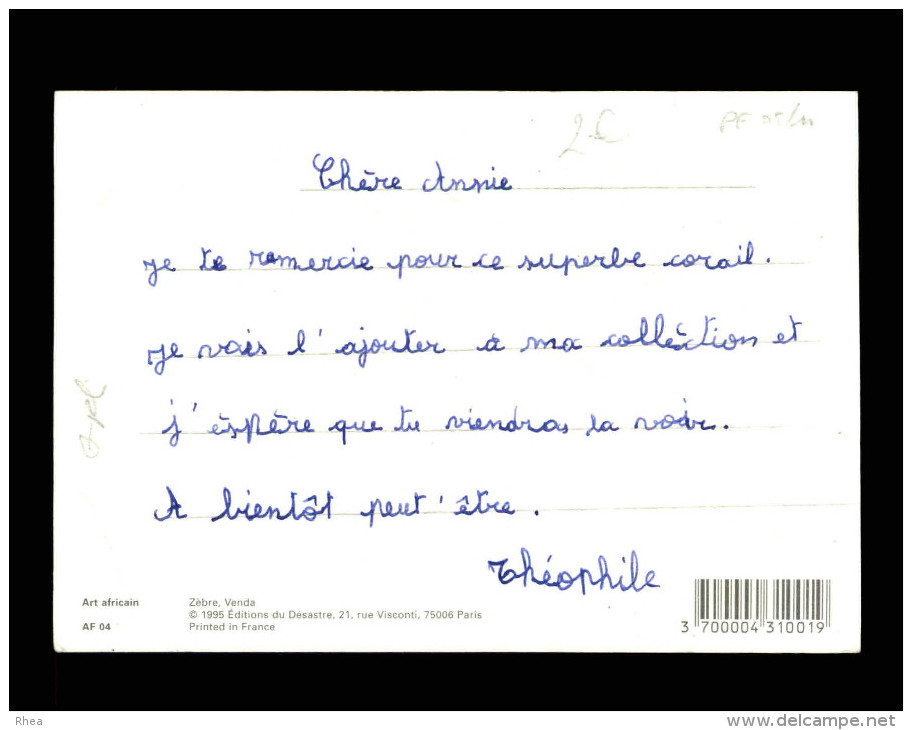 2 €
Chère Annie
je te remercie pour ce superbe corail.
je vais l'ajouter à ma colléction et
j'éspère que tu viendras la voir.
A bientôt peut'être.
Théophile
Art africain
AF 04
Zèbre, Venda
© 1995 Éditions du Désastre, 21, rue Visconti, 75006 Paris
Printed in France
3 700004 310019
Rhea
www.delcampe.net